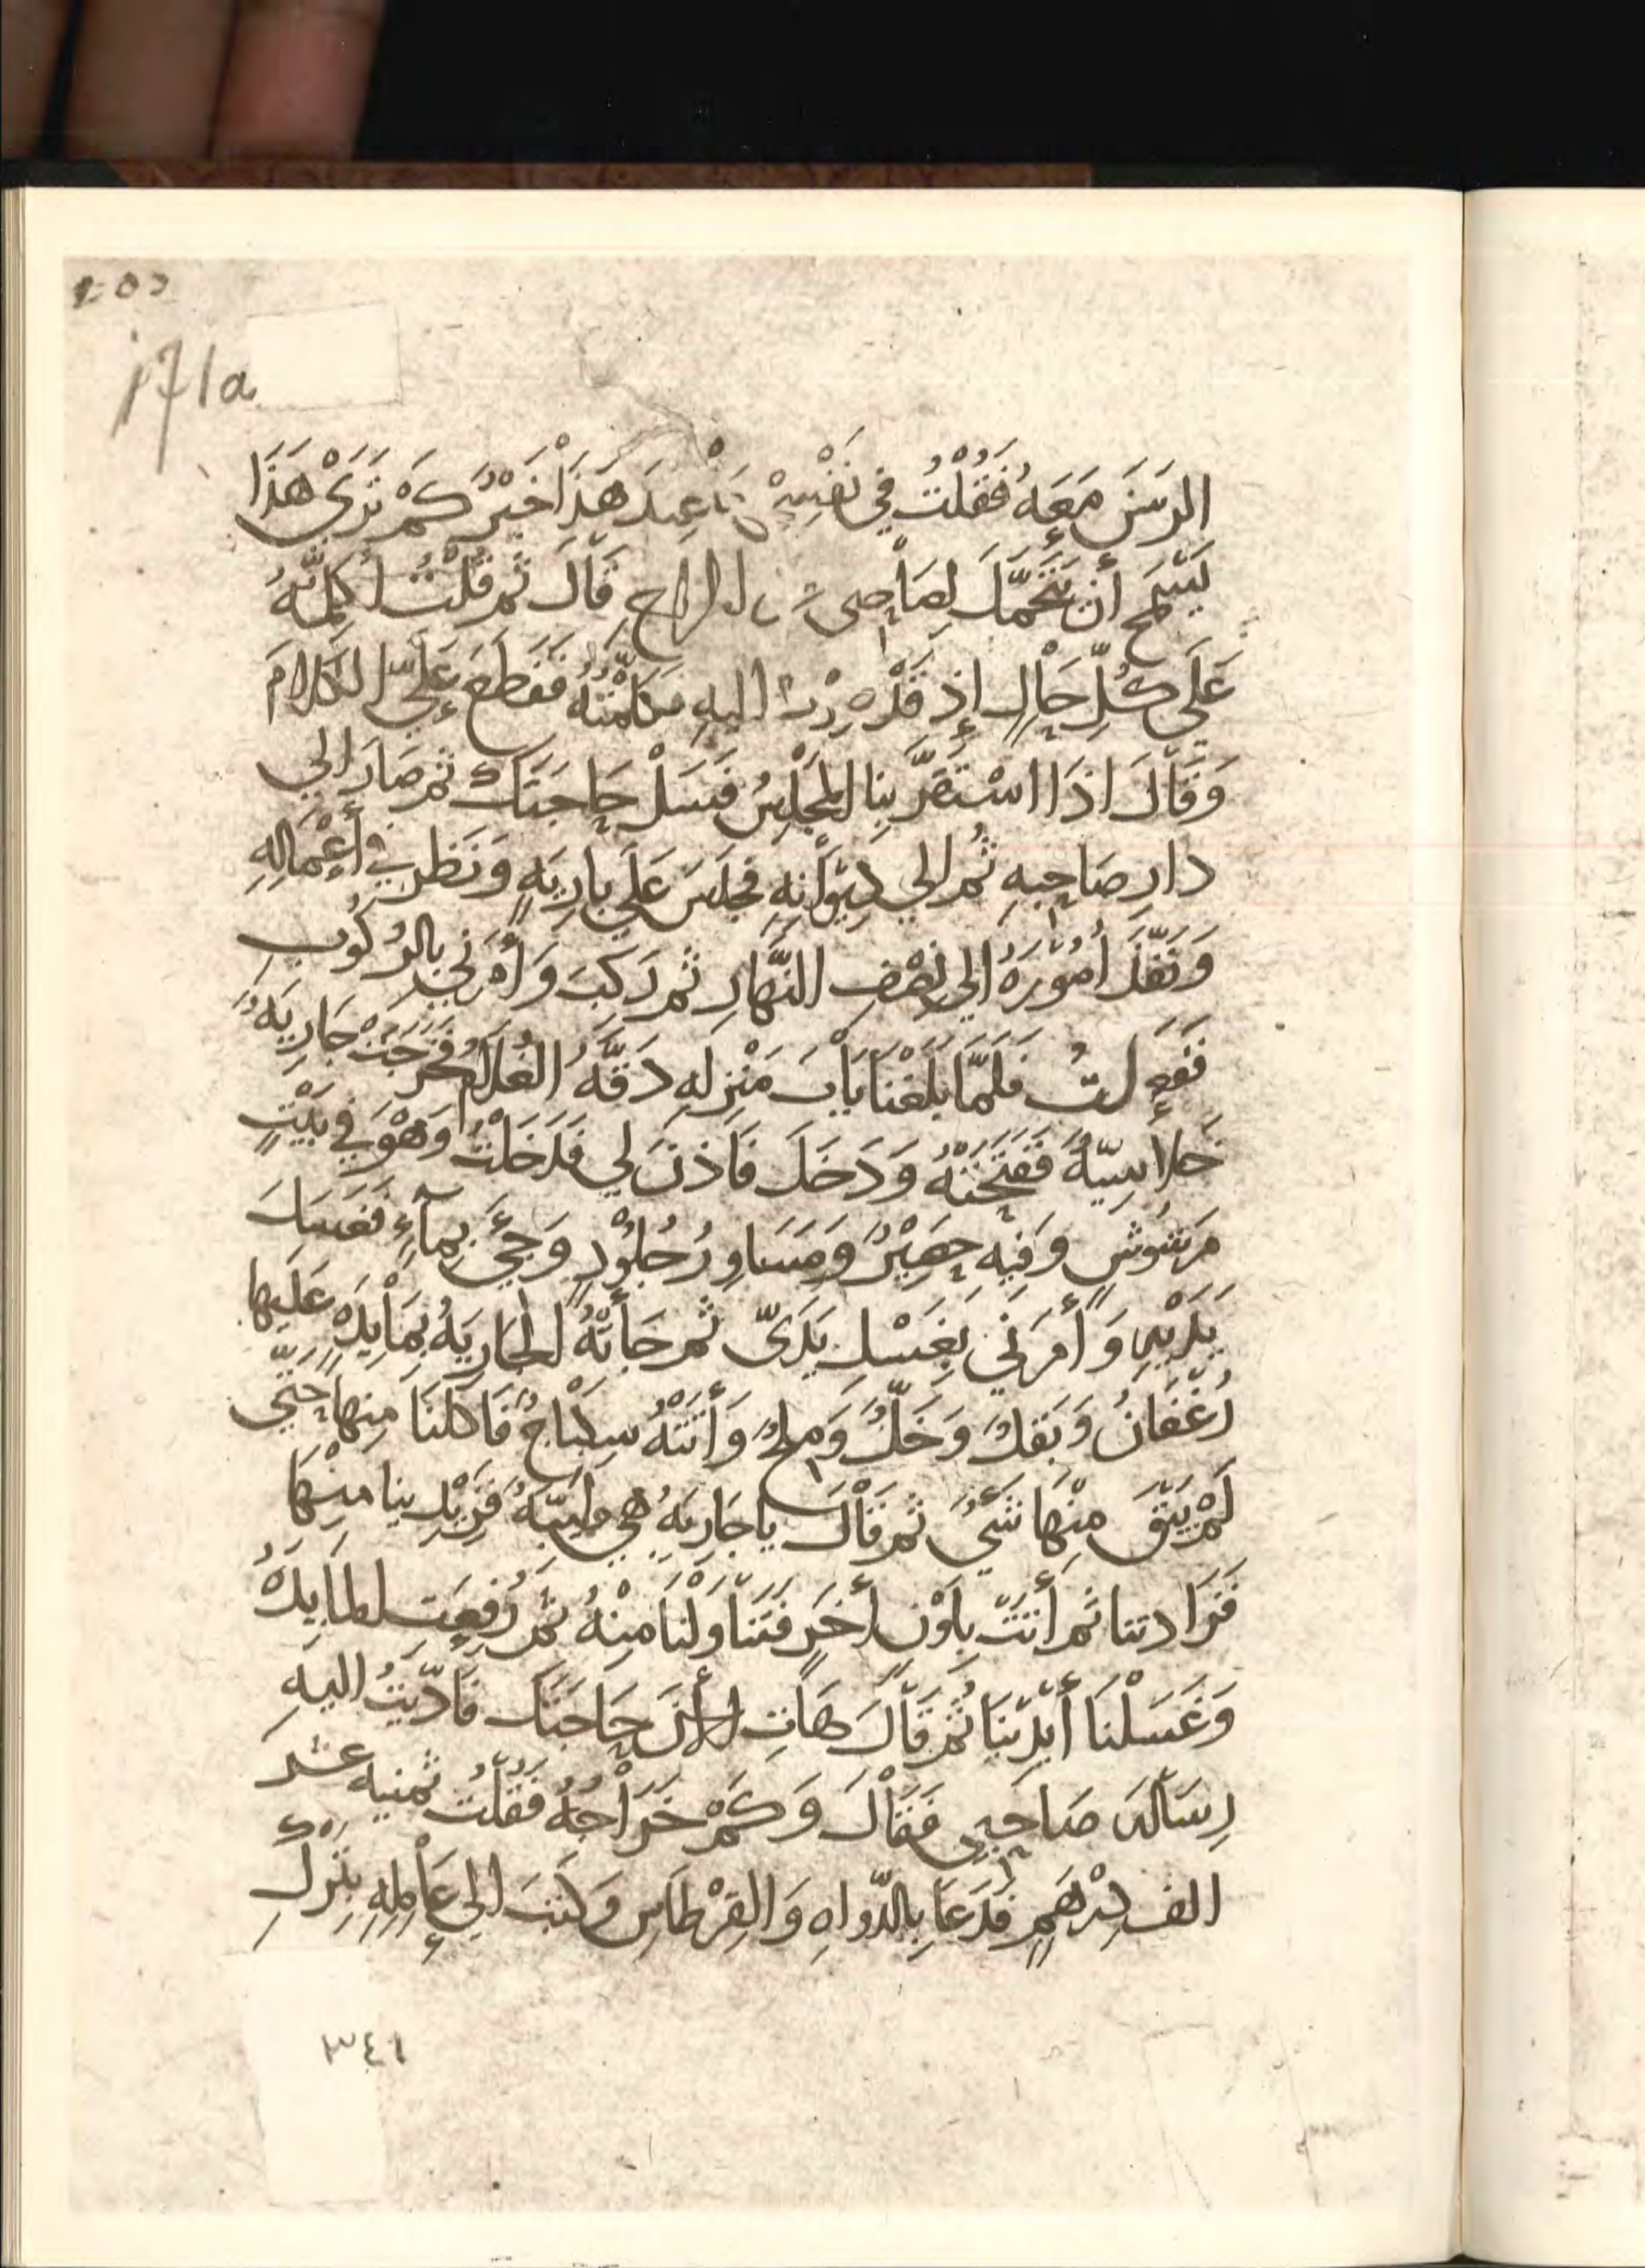 171a
الرسَنَ مَعَهُ فَقُلْتُ فِي نَفْسِي عِندَ هَذَا خَيْرٌ كَمْ تَرَيْ هَذَا
يَسْمَح أن يَتَحَمَّلَ لِصَاحِبي الخراج قَالَ ثم قُلْتُ أُكلِّمُهُ
عَلَي كُلِّ حَالٍ إِذ قَدْ صِرْتُ اليهِ فكَلَّمْتُهُ فَقَطَعَ عَلَيَّ الكَلامَ
وَقَالَ اذَا اسْتَقَرَّ بِنَا المَجْلِسُ فَسَلْ حَاجَتَك ثم صَارَ الي
دارِ صَاحِبِهِ ثُم الي دِيْوَانِهِ فجَلَسَ عَلَي بارِيَةٍ وَنَظَر فِي أَعْمَالِهِ
وَنَفَّذَ أُمُوْرَهُ الي نِصْفِ النَّهَارِ ثم رَكِبَ وَأَمَرَنِي بالرُكُوبِ
فَفَعَلتُ فَلَمَّا بَلَغْنَا بَابَ مَنْزِلِهِ دَقَّهُ الغُلَامُ فَخَرَجَتْ جَارِيَةٌ
خَلاسِيّةٌ فَفَتَحَتْهُ وَدَخَلَ فَأَذِنَ لِي فَدَخَلْتُ وَهْوَ فِي بَيْتٍ
مَرشُوشٍ وَفِيهِ حَصِيْرٌ وَمَسَاوِرُ جُلُوْدٍ وَجِيْءَ بِمَآءٍ فَغَسَلَ
يَدَيْهِ وَأَمَرَنِي بِغَسْلِ يَدَيَّ ثم جَأَتْهُ الجَارِيَةُ بِمَأيِدَةٍ عَلَيها
رُغْفَانٌ وَبَقلٌ وَخَلٌّ وَمِلحٌ وَأَتَتْهُ سِكْبَاجٌ فَاكَلنَا مِنهَا حَتَّي
لَمْ يَبْقَ مِنْهَا شَيْءٌ ثُم قَالَ يا جَارِيَةُ هِي طَيِّبَةٌ فَزِيْدِينا مِنْهَا
فَزَادتنا ثم أَتَتْ بِلَوْنٍ أخَرٍ فَتَنَاوَلْنَا مِنْهُ ثُمَّ رُفِعَتِ المَايِدَةُ
وَغَسَلْنَا أَيْدِيَنَا ثُمَّ قَالَ هَاتِ الأنَ حَاجَتَك فَادَّيْتُ اليهِ
رِسَالةَ صَاحِبِي فَقَالَ وَكَمْ خَرَاجُهُ فَقُلْتُ ثمنيه عشر
الف دِرْهَمٍ فَدَعَا بِالدّواهِ وَالقِرْطَاسِ وَكَتَبَ الي عَامِلِهِ بِتَرْكِ
٣٤١